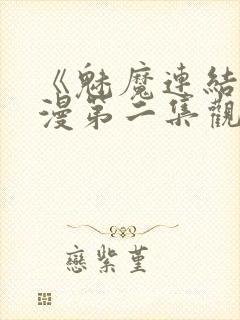 《魅魔連結
漫第二集觀
戀紫堇